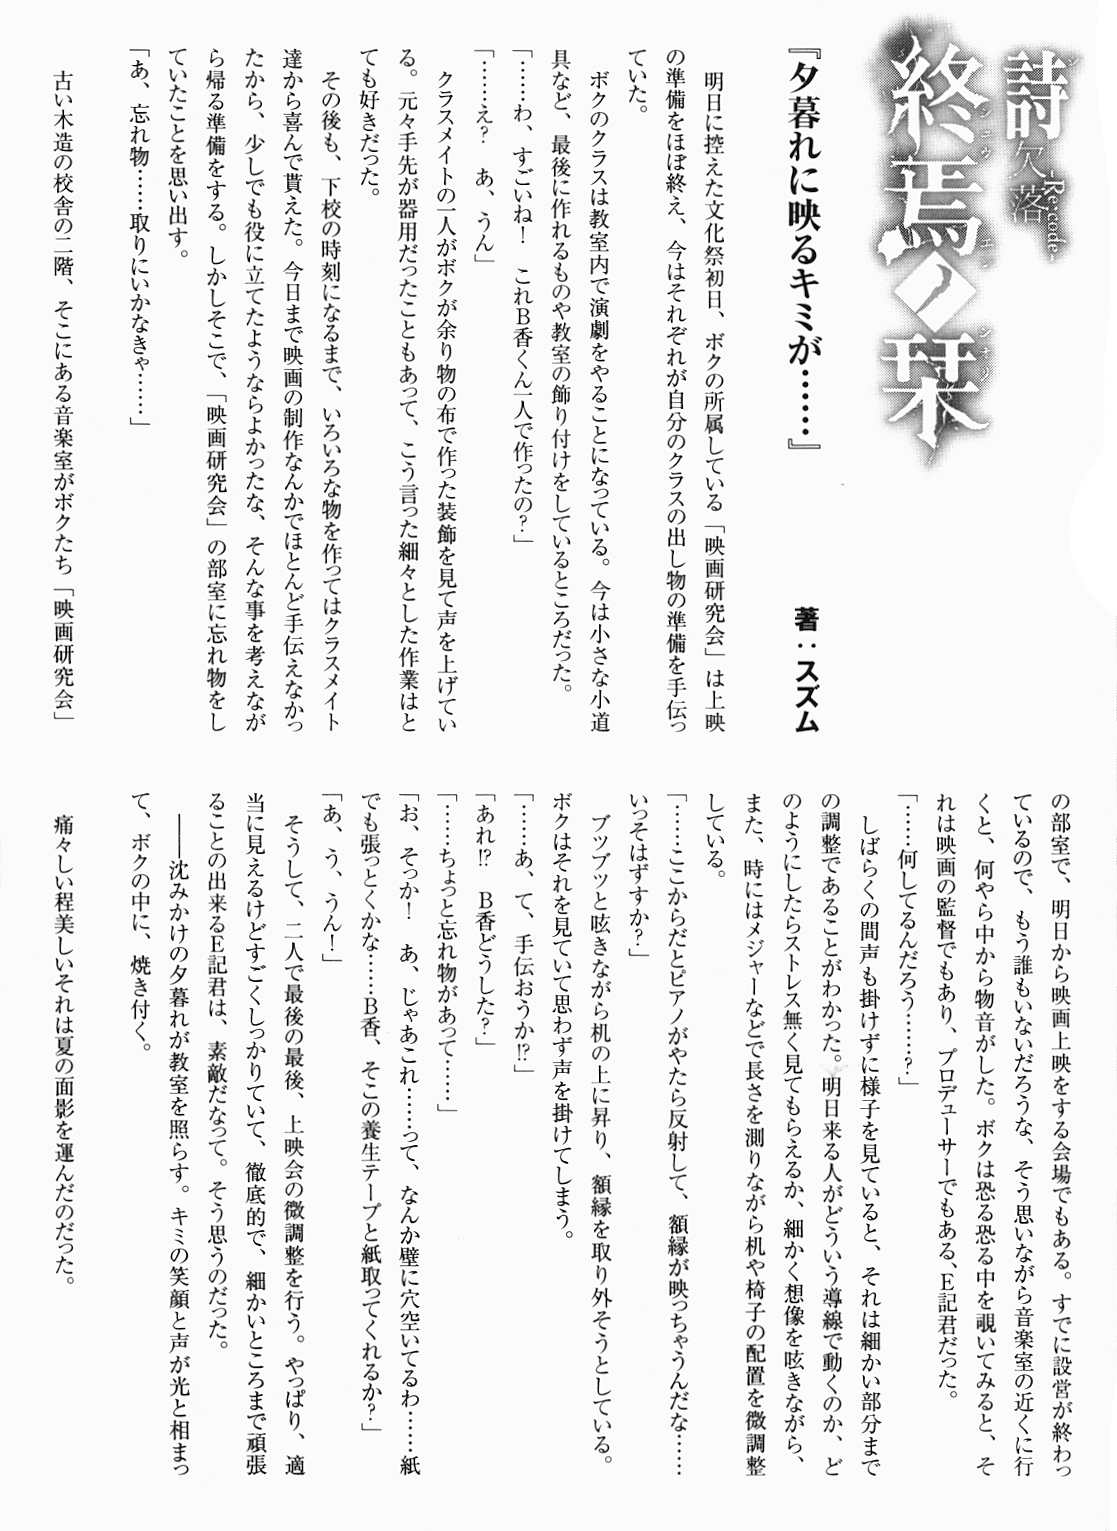 詩
欠落
-Re:code-
終焉ノ栞
シュウエンノシオリ
『夕暮れに映るキミが……』
著：スズム
明日に控えた文化祭初日、ボクの所属している「映画研究会」は上映
の準備をほぼ終え、今はそれぞれが自分のクラスの出し物の準備を手伝っ
ていた。
ボクのクラスは教室内で演劇をやることになっている。今は小さな小道
具など、最後に作れるものや教室の飾り付けをしているところだった。
「……わ、すごいね！　これB香くん一人で作ったの？」
「……え？　あ、うん」
クラスメイトの一人がボクが余り物の布で作った装飾を見て声を上げてい
る。元々手先が器用だったこともあって、こう言った細々とした作業はと
ても好きだった。
その後も、下校の時刻になるまで、いろいろな物を作ってはクラスメイト
達から喜んで貰えた。今日まで映画の制作なんかでほとんど手伝えなかっ
たから、少しでも役に立てたようならよかったな、そんな事を考えなが
ら帰る準備をする。しかしそこで、「映画研究会」の部室に忘れ物をし
ていたことを思い出す。
「あ、忘れ物……取りにいかなきゃ……」
古い木造の校舎の二階、そこにある音楽室がボクたち「映画研究会」
の部室で、明日から映画上映をする会場でもある。すでに設営が終わっ
ているので、もう誰もいないだろうな、そう思いながら音楽室の近くに行
くと、何やら中から物音がした。ボクは恐る恐る中を覗いてみると、そ
れは映画の監督でもあり、プロデューサーでもある、E記君だった。
「……何してるんだろう……？」
しばらくの間声も掛けずに様子を見ていると、それは細かい部分まで
の調整であることがわかった。明日来る人がどういう導線で動くのか、ど
のようにしたらストレス無く見てもらえるか、細かく想像を呟きながら、
また、時にはメジャーなどで長さを測りながら机や椅子の配置を微調整
している。
「……ここからだとピアノがやたら反射して、額縁が映っちゃうんだな……
いっそはずすか？」
ブツブツと呟きながら机の上に昇り、額縁を取り外そうとしている。
ボクはそれを見ていて思わず声を掛けてしまう。
「……あ、て、手伝おうか!?」
「あれ!?　B香どうした？」
「……ちょっと忘れ物があって……」
「お、そっか！　あ、じゃあこれ……って、なんか壁に穴空いてるわ……紙
でも張っとくかな……B香、そこの養生テープと紙取ってくれるか？」
「あ、う、うん！」
そうして、二人で最後の最後、上映会の微調整を行う。やっぱり、適
当に見えるけどすごくしっかりていて、徹底的で、細かいところまで頑張
ることの出来るE記君は、素敵だなって。そう思うのだった。
――沈みかけの夕暮れが教室を照らす。キミの笑顔と声が光と相まっ
て、ボクの中に、焼き付く。
痛々しい程美しいそれは夏の面影を運んだのだった。